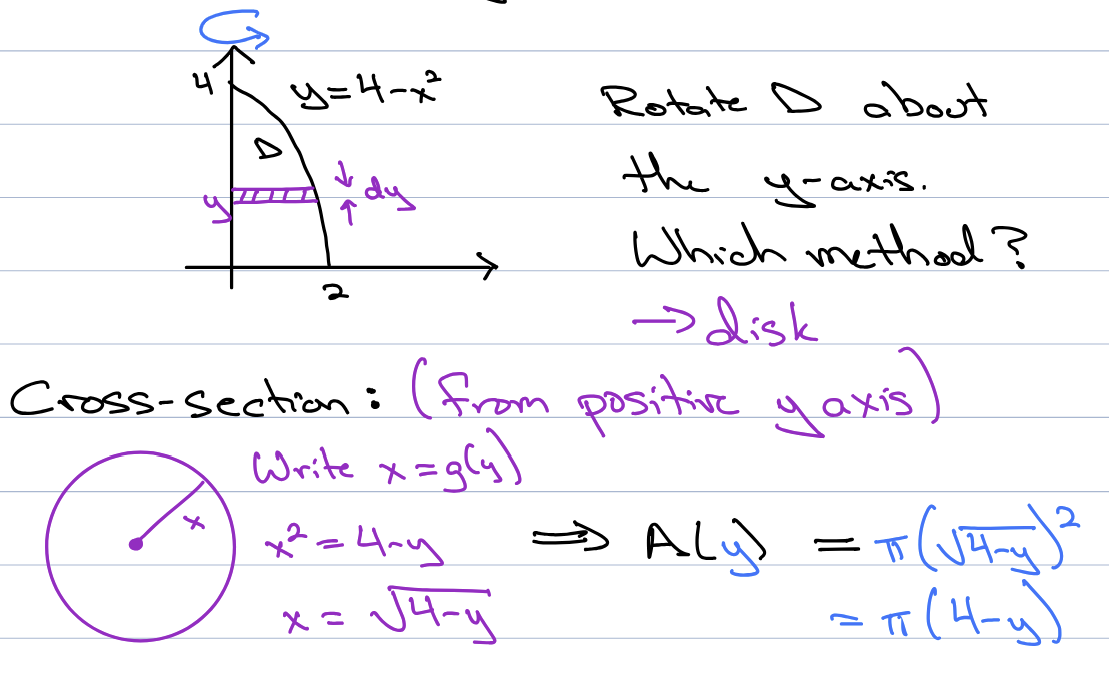 4
y=4-x²
D
dy
y
2
Rotate D about
the y-axis.
Which method?
→ disk
Cross-section: (from positive y axis)
x
Write x=g(y)
x² = 4-y
x = √(4-y)
⟹ A(y) = π(√(4-y))²
= π(4-y)